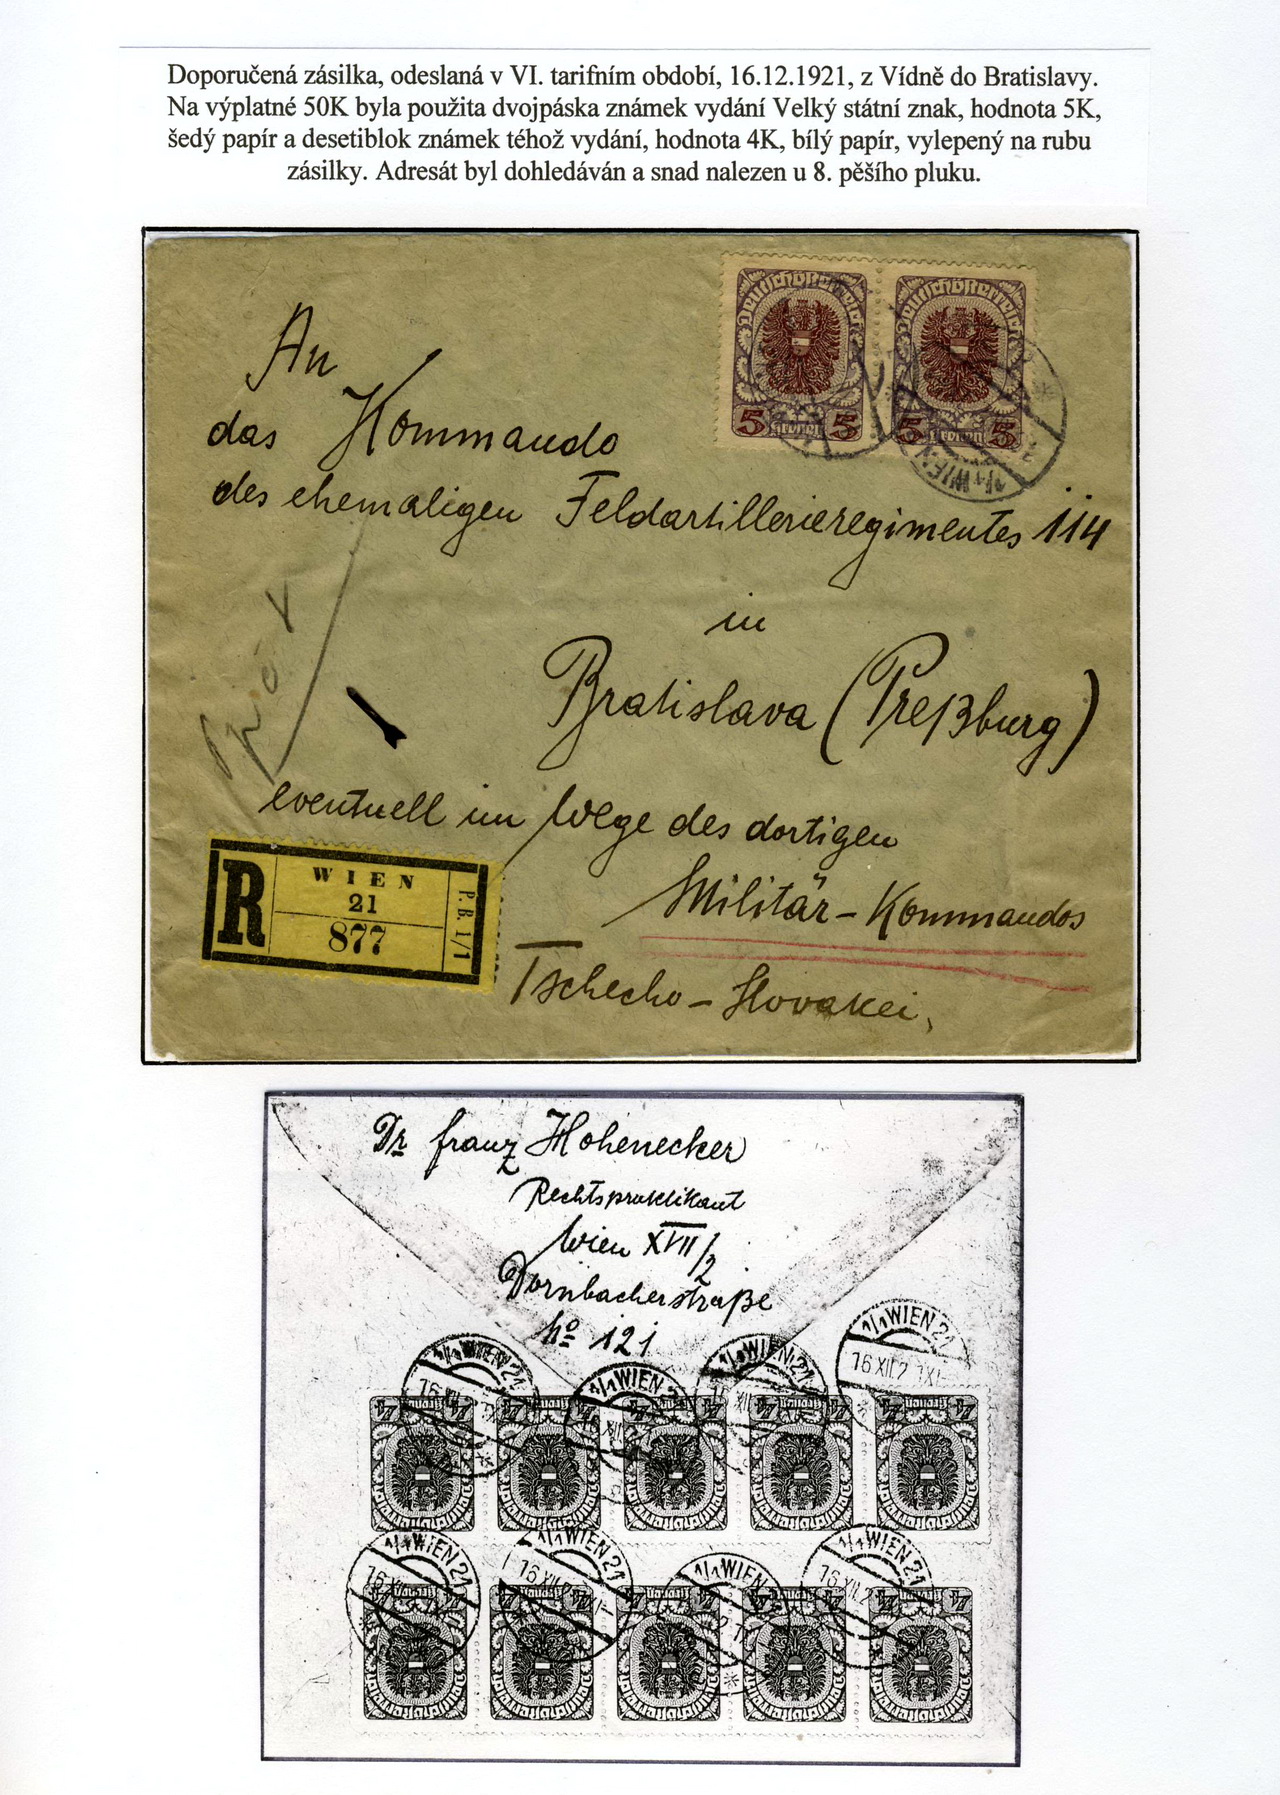 Doporučená zásilka, odeslaná v VI. tarifním období, 16.12.1921, z Vídně do Bratislavy.
Na výplatné 50K byla použita dvojpáska známek vydání Velký státní znak, hodnota 5K,
šedý papír a desetiblok známek téhož vydání, hodnota 4K, bílý papír, vylepený na rubu
zásilky. Adresát byl dohledáván a snad nalezen u 8. pěšího pluku.
Deutschösterreich Deutschösterreich
5 Kronen 5 5 Kronen 5
1/1 WIEN
An
das Kommando
des ehemaligen Feldartillerieregimentes 114
in
Bratislava (Preßburg)
eventuell im Wege des dortigen
Militär-Kommandos
Tschecho-Slovakei,
R
WIEN
21
877
P. B. 1/1
Dr Franz Hohenecker
Rechtspraktikant
Wien XVII/2
Dornbacherstraße
No 121
1/1 WIEN 21
16 XII 21
1/1 WIEN 21
1/1 WIEN 21
1/1 WIEN 21
1/1 WIEN 21
16 XII 2
1/1 WIEN 21
16 XII 2
1/1 WIEN
1/1 WIEN 21
16 XII 2